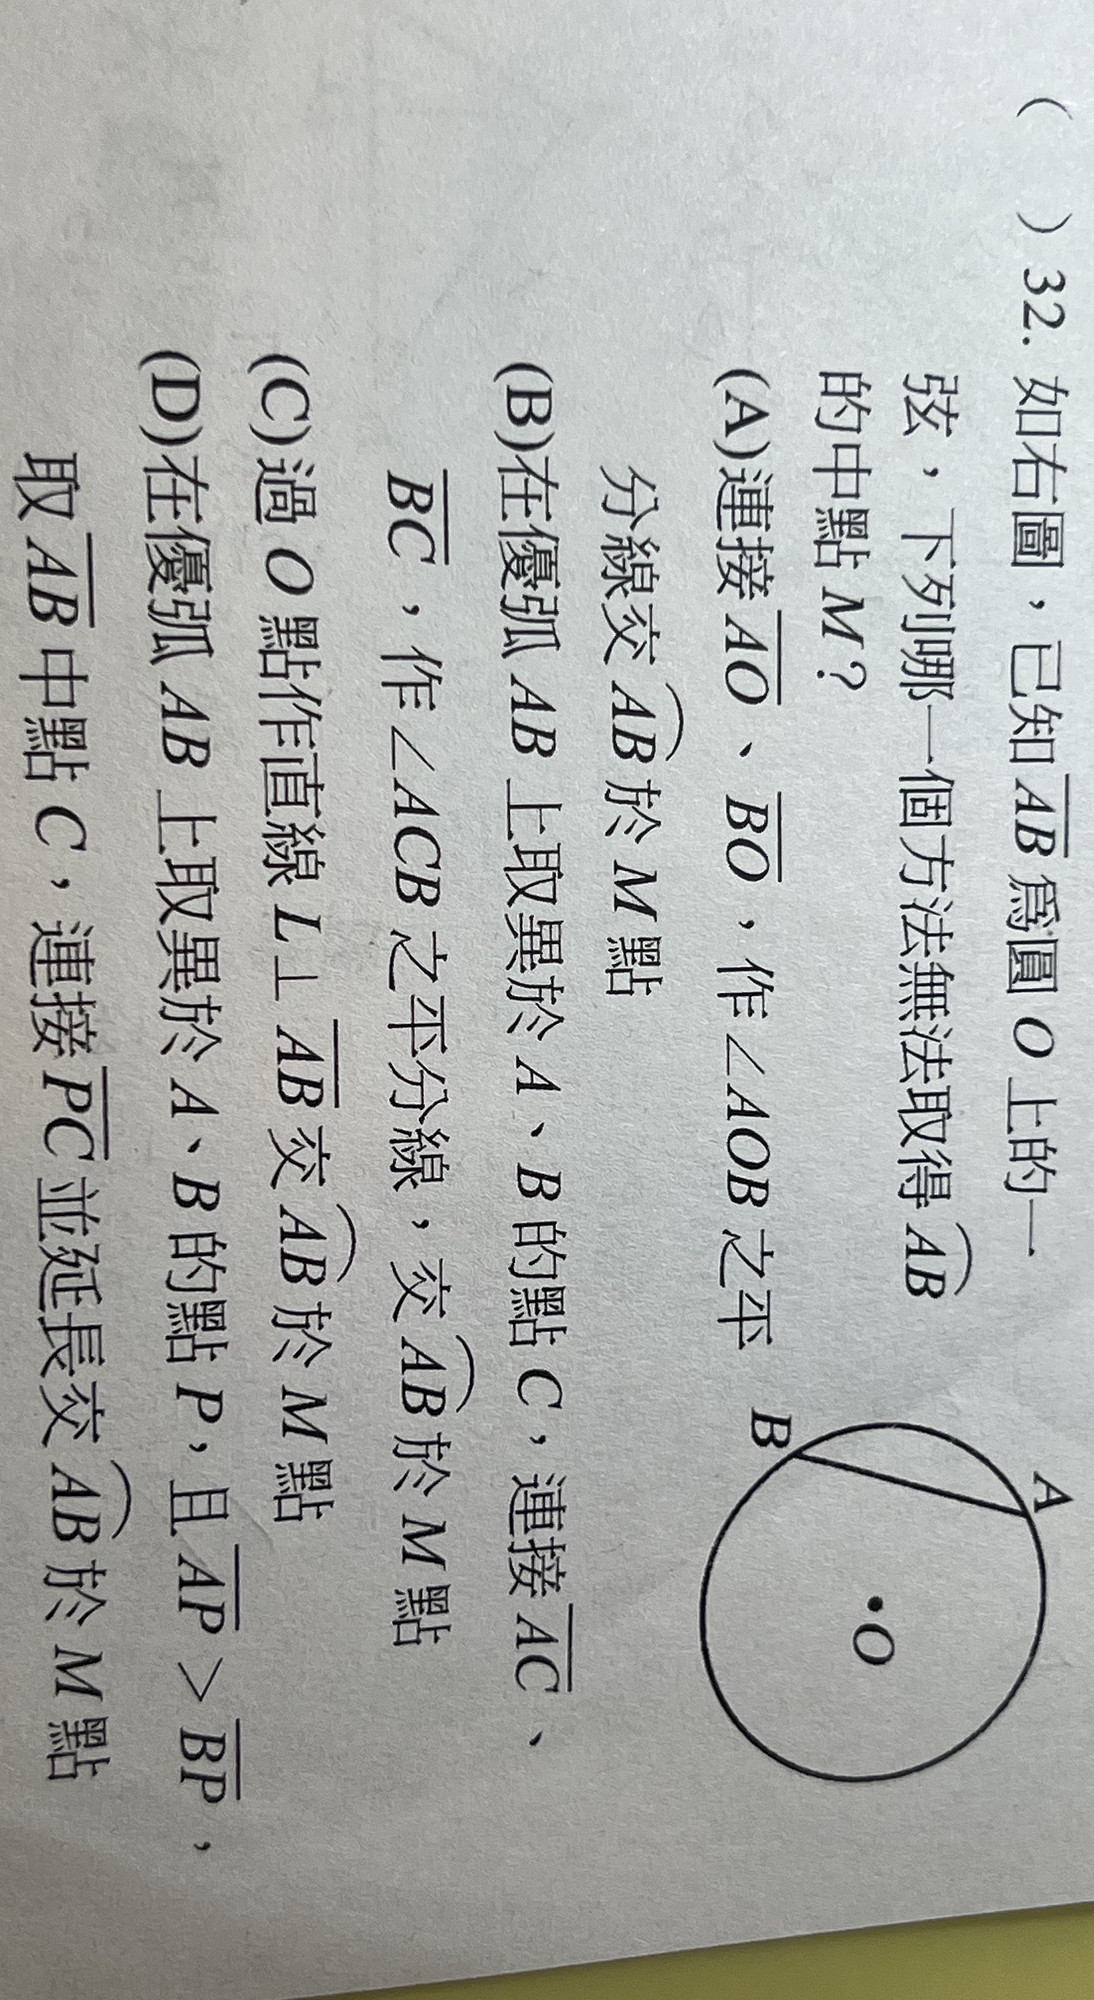 ( )32. 如右圖，已知 AB 為圓 O 上的一
弦，下列哪一個方法無法取得 AB
的中點 M？
(A)連接 AO、BO，作∠AOB 之平
分線交 AB 於 M 點
(B)在優弧 AB 上取異於 A、B 的點 C，連接 AC、
BC，作∠ACB 之平分線，交 AB 於 M 點
(C)過 O 點作直線 L⊥AB 交 AB 於 M 點
(D)在優弧 AB 上取異於 A、B 的點 P，且 AP＞BP，
取 AB 中點 C，連接 PC 並延長交 AB 於 M 點
A
B
O